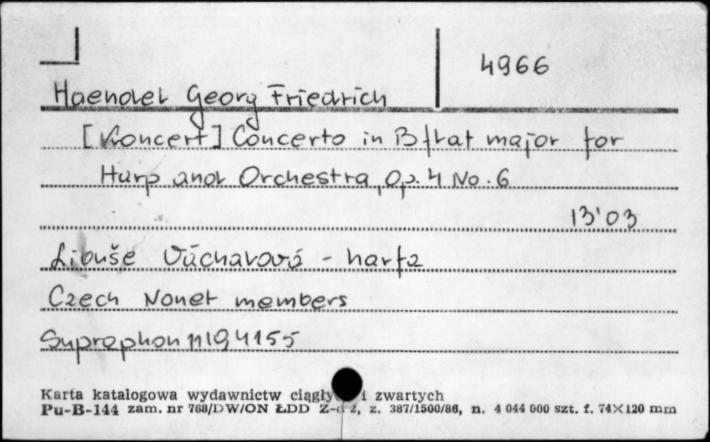 4966
Haendel Georg Friedrich
[Koncert] Concerto in B flat major for
Harp and Orchestra, Op. 4 No. 6
13'03
Libuše Váchalová - harfa
Czech Nonet members
Supraphon 11194155
Karta katalogowa wydawnictw ciągły i zwartych
Pu-B-144 zam. nr 768/DW/ON ŁDD z. 387/1500/86, n. 4 044 000 szt. f. 74×120 mm